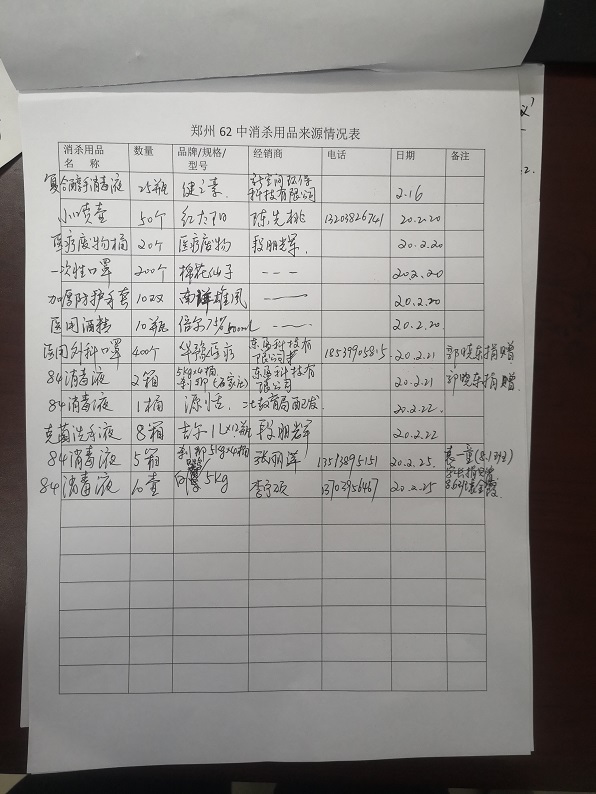 郑州 62 中消杀用品来源情况表
消杀用品名 称 数量 品牌/规格/型号 经销商 电话 日期 备注
复合醇手消毒液 25瓶 健之素 科技有限公司 2.16
小喷壶 50个 红太阳 陈先桃 13203826741 20.2.20
医疗废物桶 20个 医疗废物 段明军 20.2.20
一次性口罩 200个 棉花仙子 --- 20.2.20
加厚防护手套 10双 南洋雄风 —— 20.2.20
医用酒精 10瓶 倍尔 500mL —— 20.2.20.
医用外科口罩 400个 华豫医疗 科技有限公司 20.2.21 郭晓东捐赠
84消毒液 2箱 5kg×4桶 科技有限公司 20.2.21 郭晓东捐赠.
84消毒液 1桶 源洁. 二七教育局配发. 20.2.22.
克菌洗手液 8箱 吉尔1L×12瓶 段明军 20.2.22
84消毒液 5箱 5kg×4桶 张明洋 13513895151 20.2.25.
84消毒液 10壶 5kg 13703956467 20.2.25